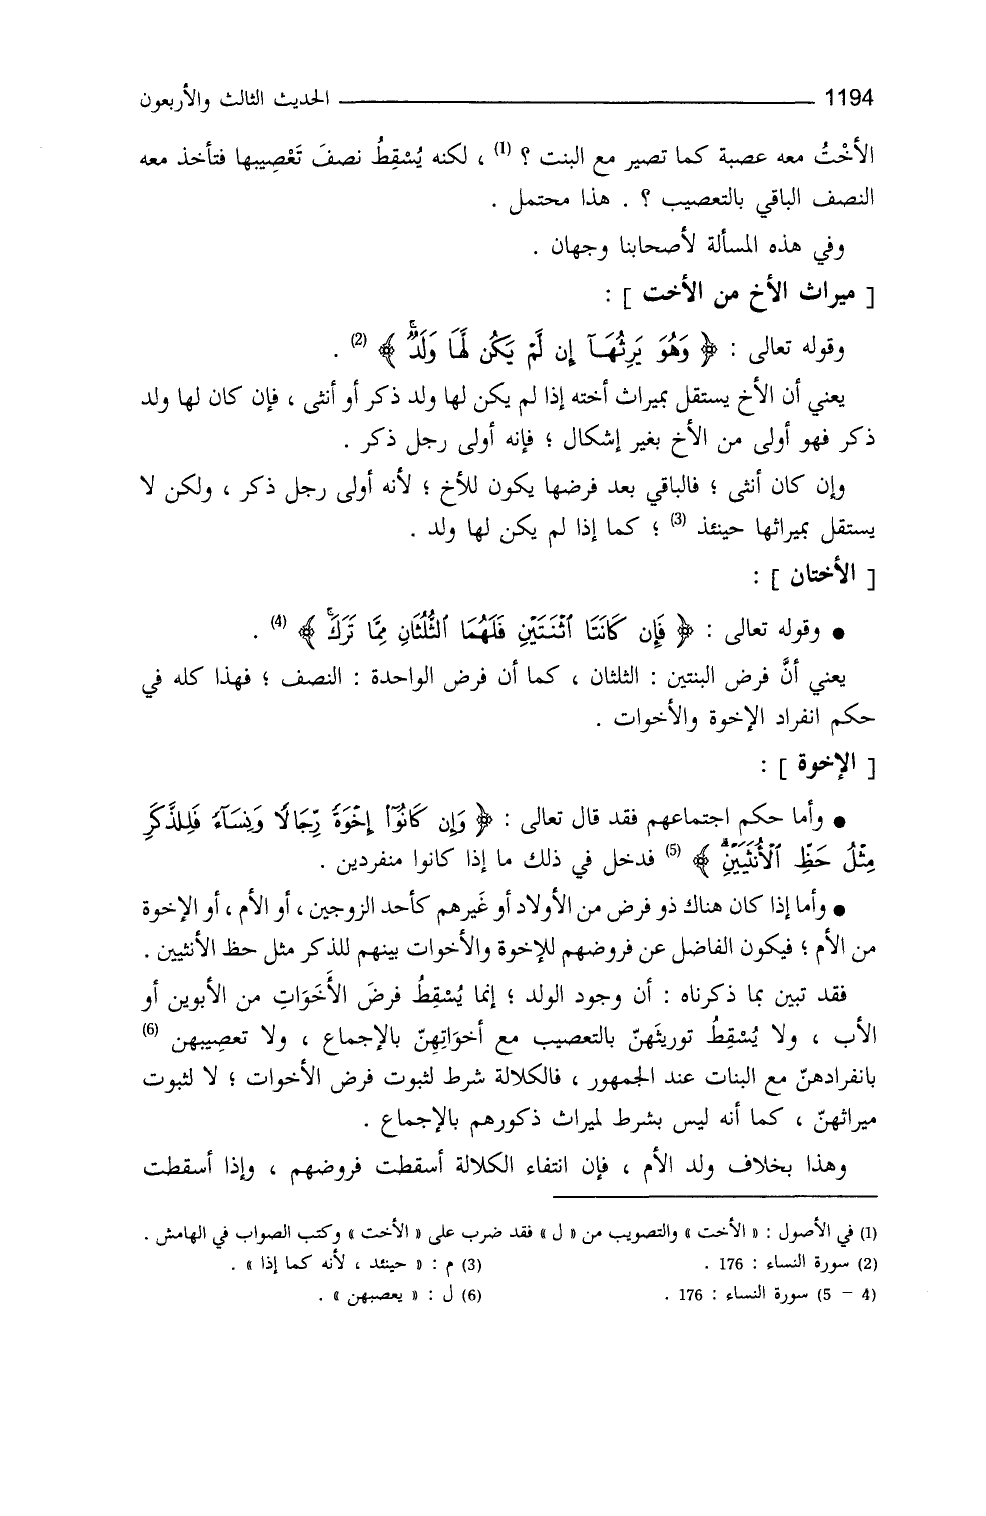 1194 الحديث الثالث والأربعون
الأخْتُ معه عصبة كما تصير مع البنت ؟ (1) ، لكنه يُسْقِطُ نصفَ تَعْصِيبها فتأخذ معه
النصف الباقي بالتعصيب ؟ . هذا محتمل .
وفي هذه المسألة لأصحابنا وجهان .
[ ميراث الأخ من الأخت ] :
وقوله تعالى : ﴿ وَهُوَ يَرِثُهَآ إِن لَّمْ يَكُن لَّهَا وَلَدٌ ۚ ﴾ (2) .
يعني أن الأخ يستقل بميراث أخته إذا لم يكن لها ولد ذكر أو أنثى ، فإن كان لها ولد
ذكر فهو أولى من الأخ بغير إشكال ؛ فإنه أولى رجل ذكر .
وإن كان أنثى ؛ فالباقي بعد فرضها يكون للأخ ؛ لأنه أولى رجل ذكر ، ولكن لا
يستقل بميراثها حينئذ (3) ؛ كما إذا لم يكن لها ولد .
[ الأختان ] :
● وقوله تعالى : ﴿ فَإِن كَانَتَا ٱثْنَتَيْنِ فَلَهُمَا ٱلثُّلُثَانِ مِمَّا تَرَكَ ۚ ﴾ (4) .
يعني أنَّ فرض البنتين : الثلثان ، كما أن فرض الواحدة : النصف ؛ فهذا كله في
حكم انفراد الإخوة والأخوات .
[ الإخوة ] :
● وأما حكم اجتماعهم فقد قال تعالى : ﴿ وَإِن كَانُوٓا۟ إِخْوَةً رِّجَالًا وَنِسَآءً فَلِلذَّكَرِ
مِثْلُ حَظِّ ٱلْأُنثَيَيْنِ ۗ ﴾ (5) فدخل في ذلك ما إذا كانوا منفردين .
● وأما إذا كان هناك ذو فرض من الأولاد أو غَيرهم كأحد الزوجين ، أو الأم ، أو الإخوة
من الأم ؛ فيكون الفاضل عن فروضهم للإخوة والأخوات بينهم للذكر مثل حظ الأنثيين .
فقد تبين بما ذكرناه : أن وجود الولد ؛ إنما يُسْقِطُ فرضَ الأَخَوَاتِ من الأبوين أو
الأب ، ولا يُسْقِطُ توريثَهنّ بالتعصيب مع أخوَاتِهِنّ بالإجماع ، ولا تعصِيبهن (6)
بانفرادهنّ مع البنات عند الجمهور ، فالكلالة شرط لثبوت فرض الأخوات ؛ لا لثبوت
ميراثهنّ ، كما أنه ليس بشرط لميراث ذكورهم بالإجماع .
وهذا بخلاف ولد الأم ، فإن انتفاء الكلالة أسقطت فروضهم ، وإذا أسقطت
(1) في الأصول : « الأخت » والتصويب من « ل » فقد ضرب على « الأخت » وكتب الصواب في الهامش .
(2) سورة النساء : 176 . (3) م : « حينئد ، لأنه كما إذا » .
(4 – 5) سورة النساء : 176 . (6) ل : « يعصبهن » .